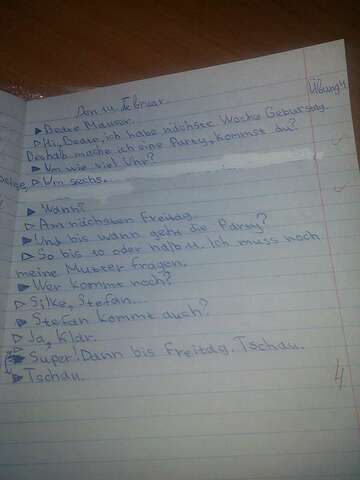 Den 14. Februar.
Übung 4
▶ Beate Maurer.
▷ Hi, Beate, ich habe nächste Woche Geburtstag.
Deshalb mache ich eine Party, kommst du?
▶ Um wie viel Uhr?
▷ Um sechs.
▶ Wann?
▷ Am nächsten Freitag.
▶ Und bis wann geht die Party?
▷ So bis 10 oder halb 11. Ich muss noch
meine Mutter fragen.
▶ Wer kommt noch?
▷ Silke, Stefan...
▶ Stefan kommt auch?
▷ Ja, klar.
▶ Super! Dann bis Freitag. Tschau.
▶ Tschau.
4